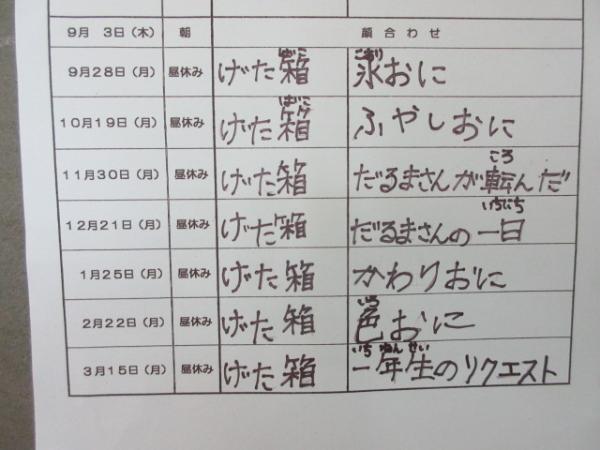 9月 3日(木) 朝 顔合わせ
9月28日(月) 昼休み げた箱 ばこ 氷おに こおり
10月19日(月) 昼休み げた箱 ばこ ふやしおに
11月30日(月) 昼休み げた箱 だるまさんが転んだ ころ
12月21日(月) 昼休み げた箱 だるまさんの一日 いちにち
1月25日(月) 昼休み げた箱 かわりおに
2月22日(月) 昼休み げた箱 色おに いろ
3月15日(月) 昼休み げた箱 一年生のリクエスト いち ねん せい